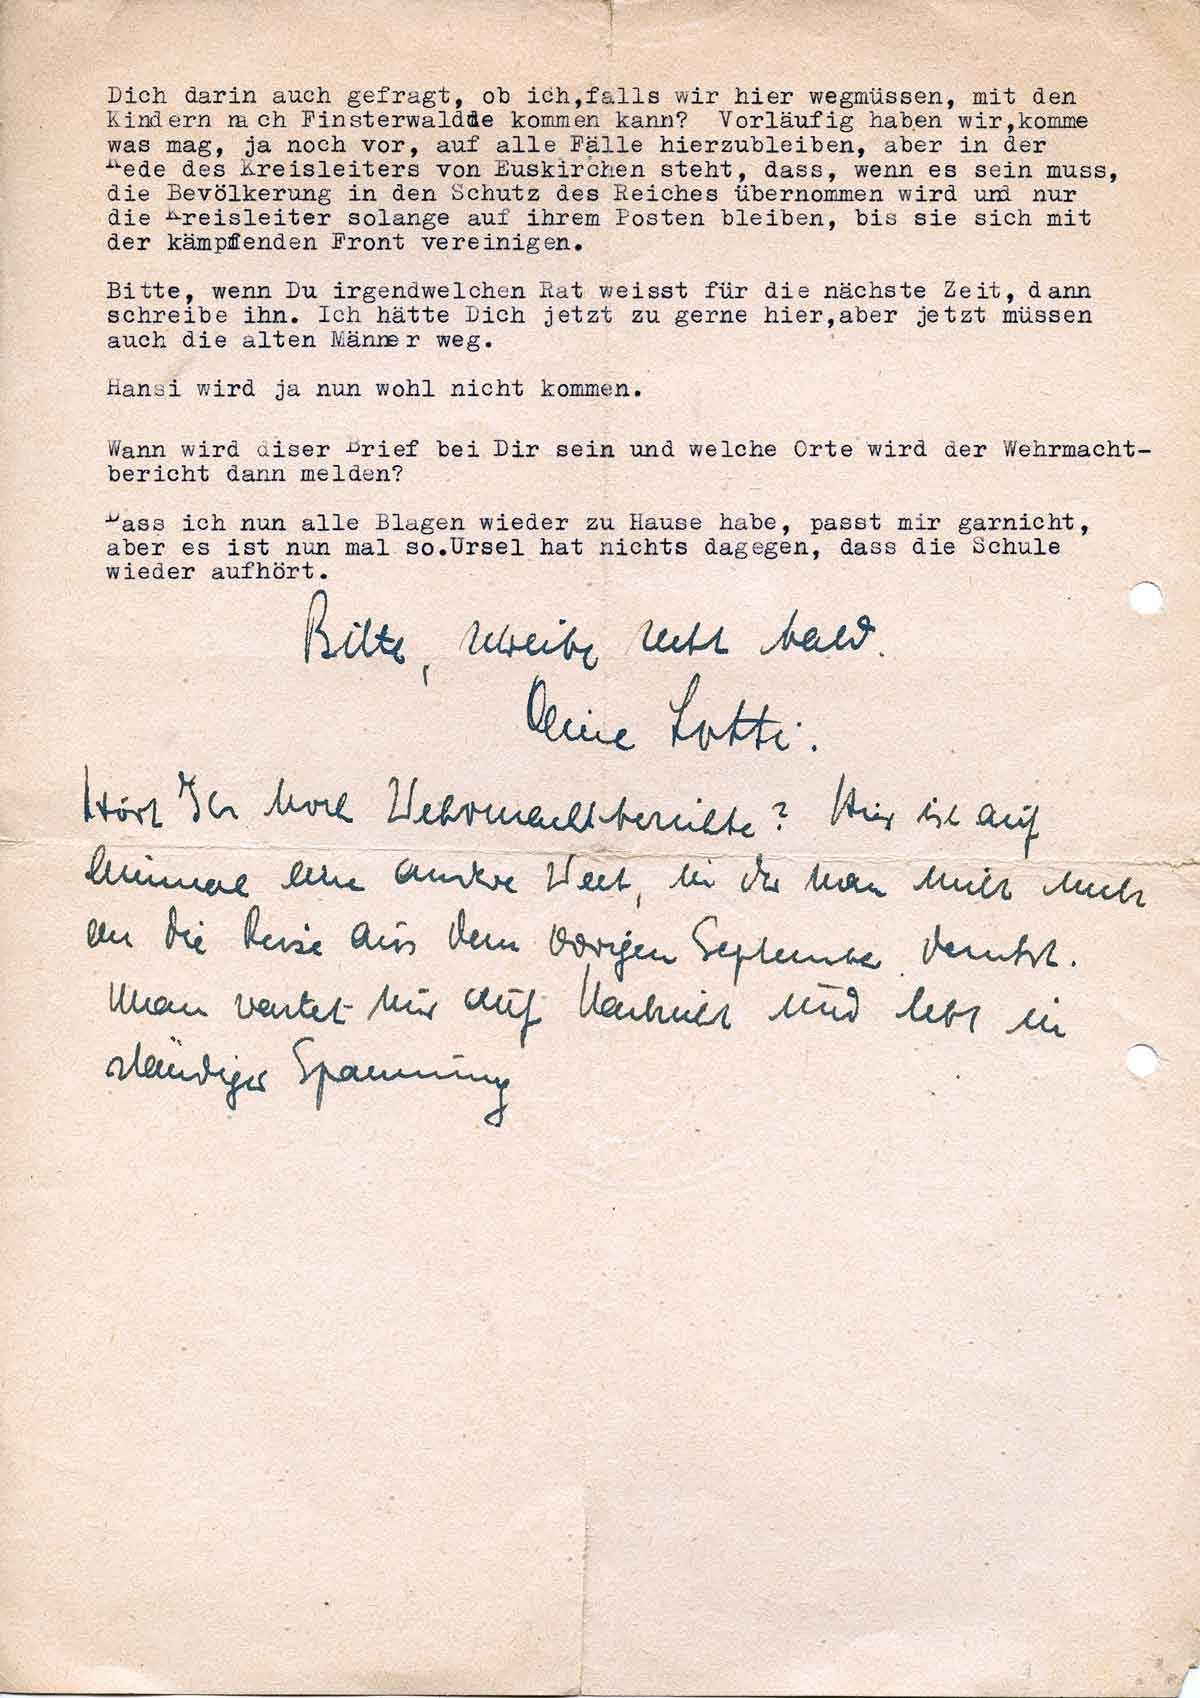 Dich darin auch gefragt, ob ich,falls wir hier wegmüssen, mit den
Kindern nach Finsterwaldde kommen kann? Vorläufig haben wir,komme
was mag, ja noch vor, auf alle Fälle hierzubleiben, aber in der
Rede des Kreisleiters von Euskirchen steht, dass, wenn es sein muss,
die Bevölkerung in den Schutz des Reiches übernommen wird und nur
die Kreisleiter solange auf ihrem Posten bleiben, bis sie sich mit
der kämpfenden Front vereinigen.
Bitte, wenn Du irgendwelchen Rat weisst für die nächste Zeit, dann
schreibe ihn. Ich hätte Dich jetzt zu gerne hier,aber jetzt müssen
auch die alten Männer weg.
Hansi wird ja nun wohl nicht kommen.
Wann wird diser Brief bei Dir sein und welche Orte wird der Wehrmacht-
bericht dann melden?
Dass ich nun alle Blagen wieder zu Hause habe, passt mir garnicht,
aber es ist nun mal so.Ursel hat nichts dagegen, dass die Schule
wieder aufhört.
Bitte, schreibe recht bald.
Deine Lotti.
Hört Ihr noch Wehrmachtberichte? Hier ist auf
einmal eine andere Welt, in der man nicht mehr
an die Reise aus dem vorigen September denkt.
Man wartet nur auf Nachricht und lebt in
ständiger Spannung